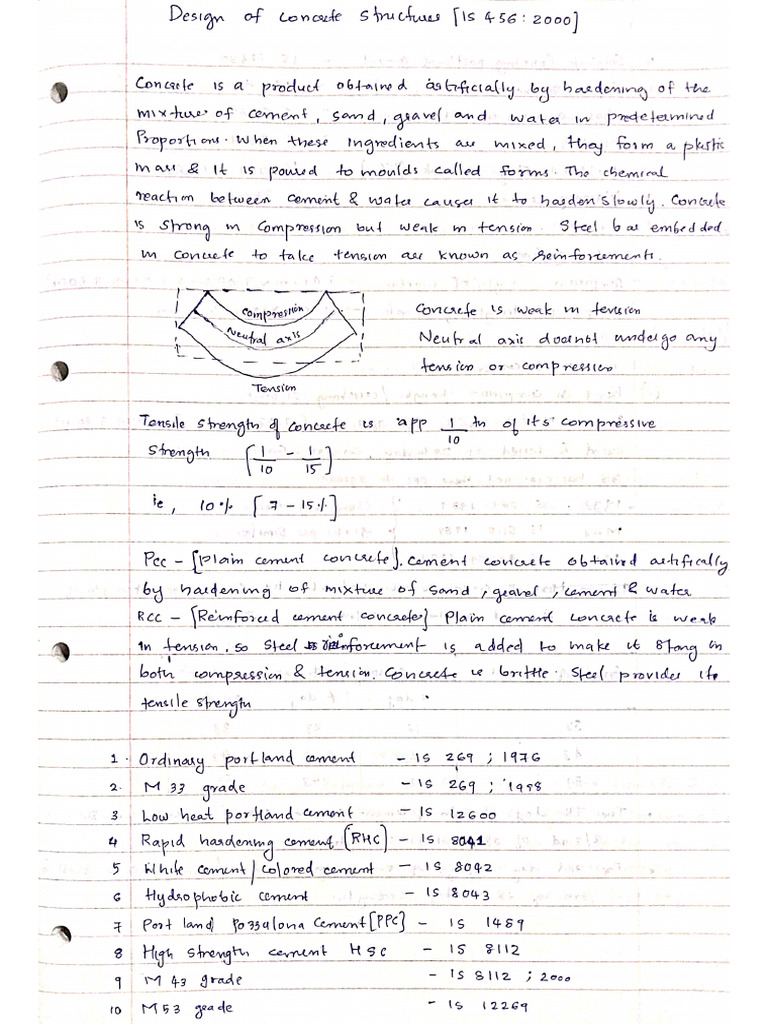 Design of concrete structures [IS 456:2000]
Concrete is a product obtained artificially by hardening of the
mixture of cement, sand, gravel and water in predetermined
Proportions. When these ingredients are mixed, they form a plastic
mass & it is poured to moulds called forms. The chemical
reaction between cement & water causes it to harden slowly. Concrete
is strong in compression but weak in tension. Steel bar embedded
in concrete to take tension are known as reinforcements.
compression
Neutral axis
Tension
Concrete is weak in tension
Neutral axis doesnot undergo any
tension or compression
Tensile strength of concrete is app 1/10 th of its compressive
strength [1/10 - 1/15]
ie, 10% [7-15%]
PCC - [Plain cement concrete]. Cement concrete obtained artifically
by hardening of mixture of sand, gravel, cement & water
RCC - [Reinforced cement concrete] Plain cement concrete is weak
in tension. so steel reinforcement is added to make it stong in
both compression & tension. Concrete is brittle. Steel provides its
tensile strength
1. Ordinary portland cement - IS 269 ; 1976
2. M 33 grade - IS 269 ; 1988
3 Low heat portland cement - IS 12600
4 Rapid hardening cement [RHC] - IS 8041
5 White cement/colored cement - IS 8042
6 Hydrophobic cement - IS 8043
7 Port land Pozzalona Cement [PPC] - IS 1489
8 High strength cement HSC - IS 8112
9 M 43 grade - IS 8112 ; 2000
10 M 53 grade - IS 12269